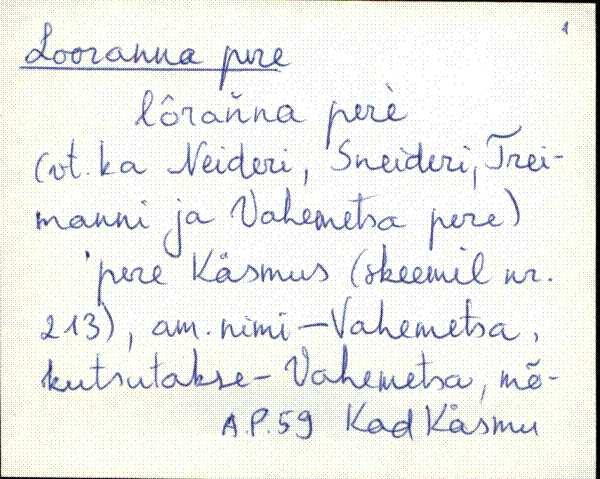 1
Looranna pere
lôrańna perè
(vt. ka Neideri, Sneideri, Trei-
manni ja Vahemetsa pere)
'pere Käsmus (skeemil nr.
213), am. nimi – Vahemetsa,
kutsutakse – Vahemetsa, mõ-
A.P.59 Kad Käsmu